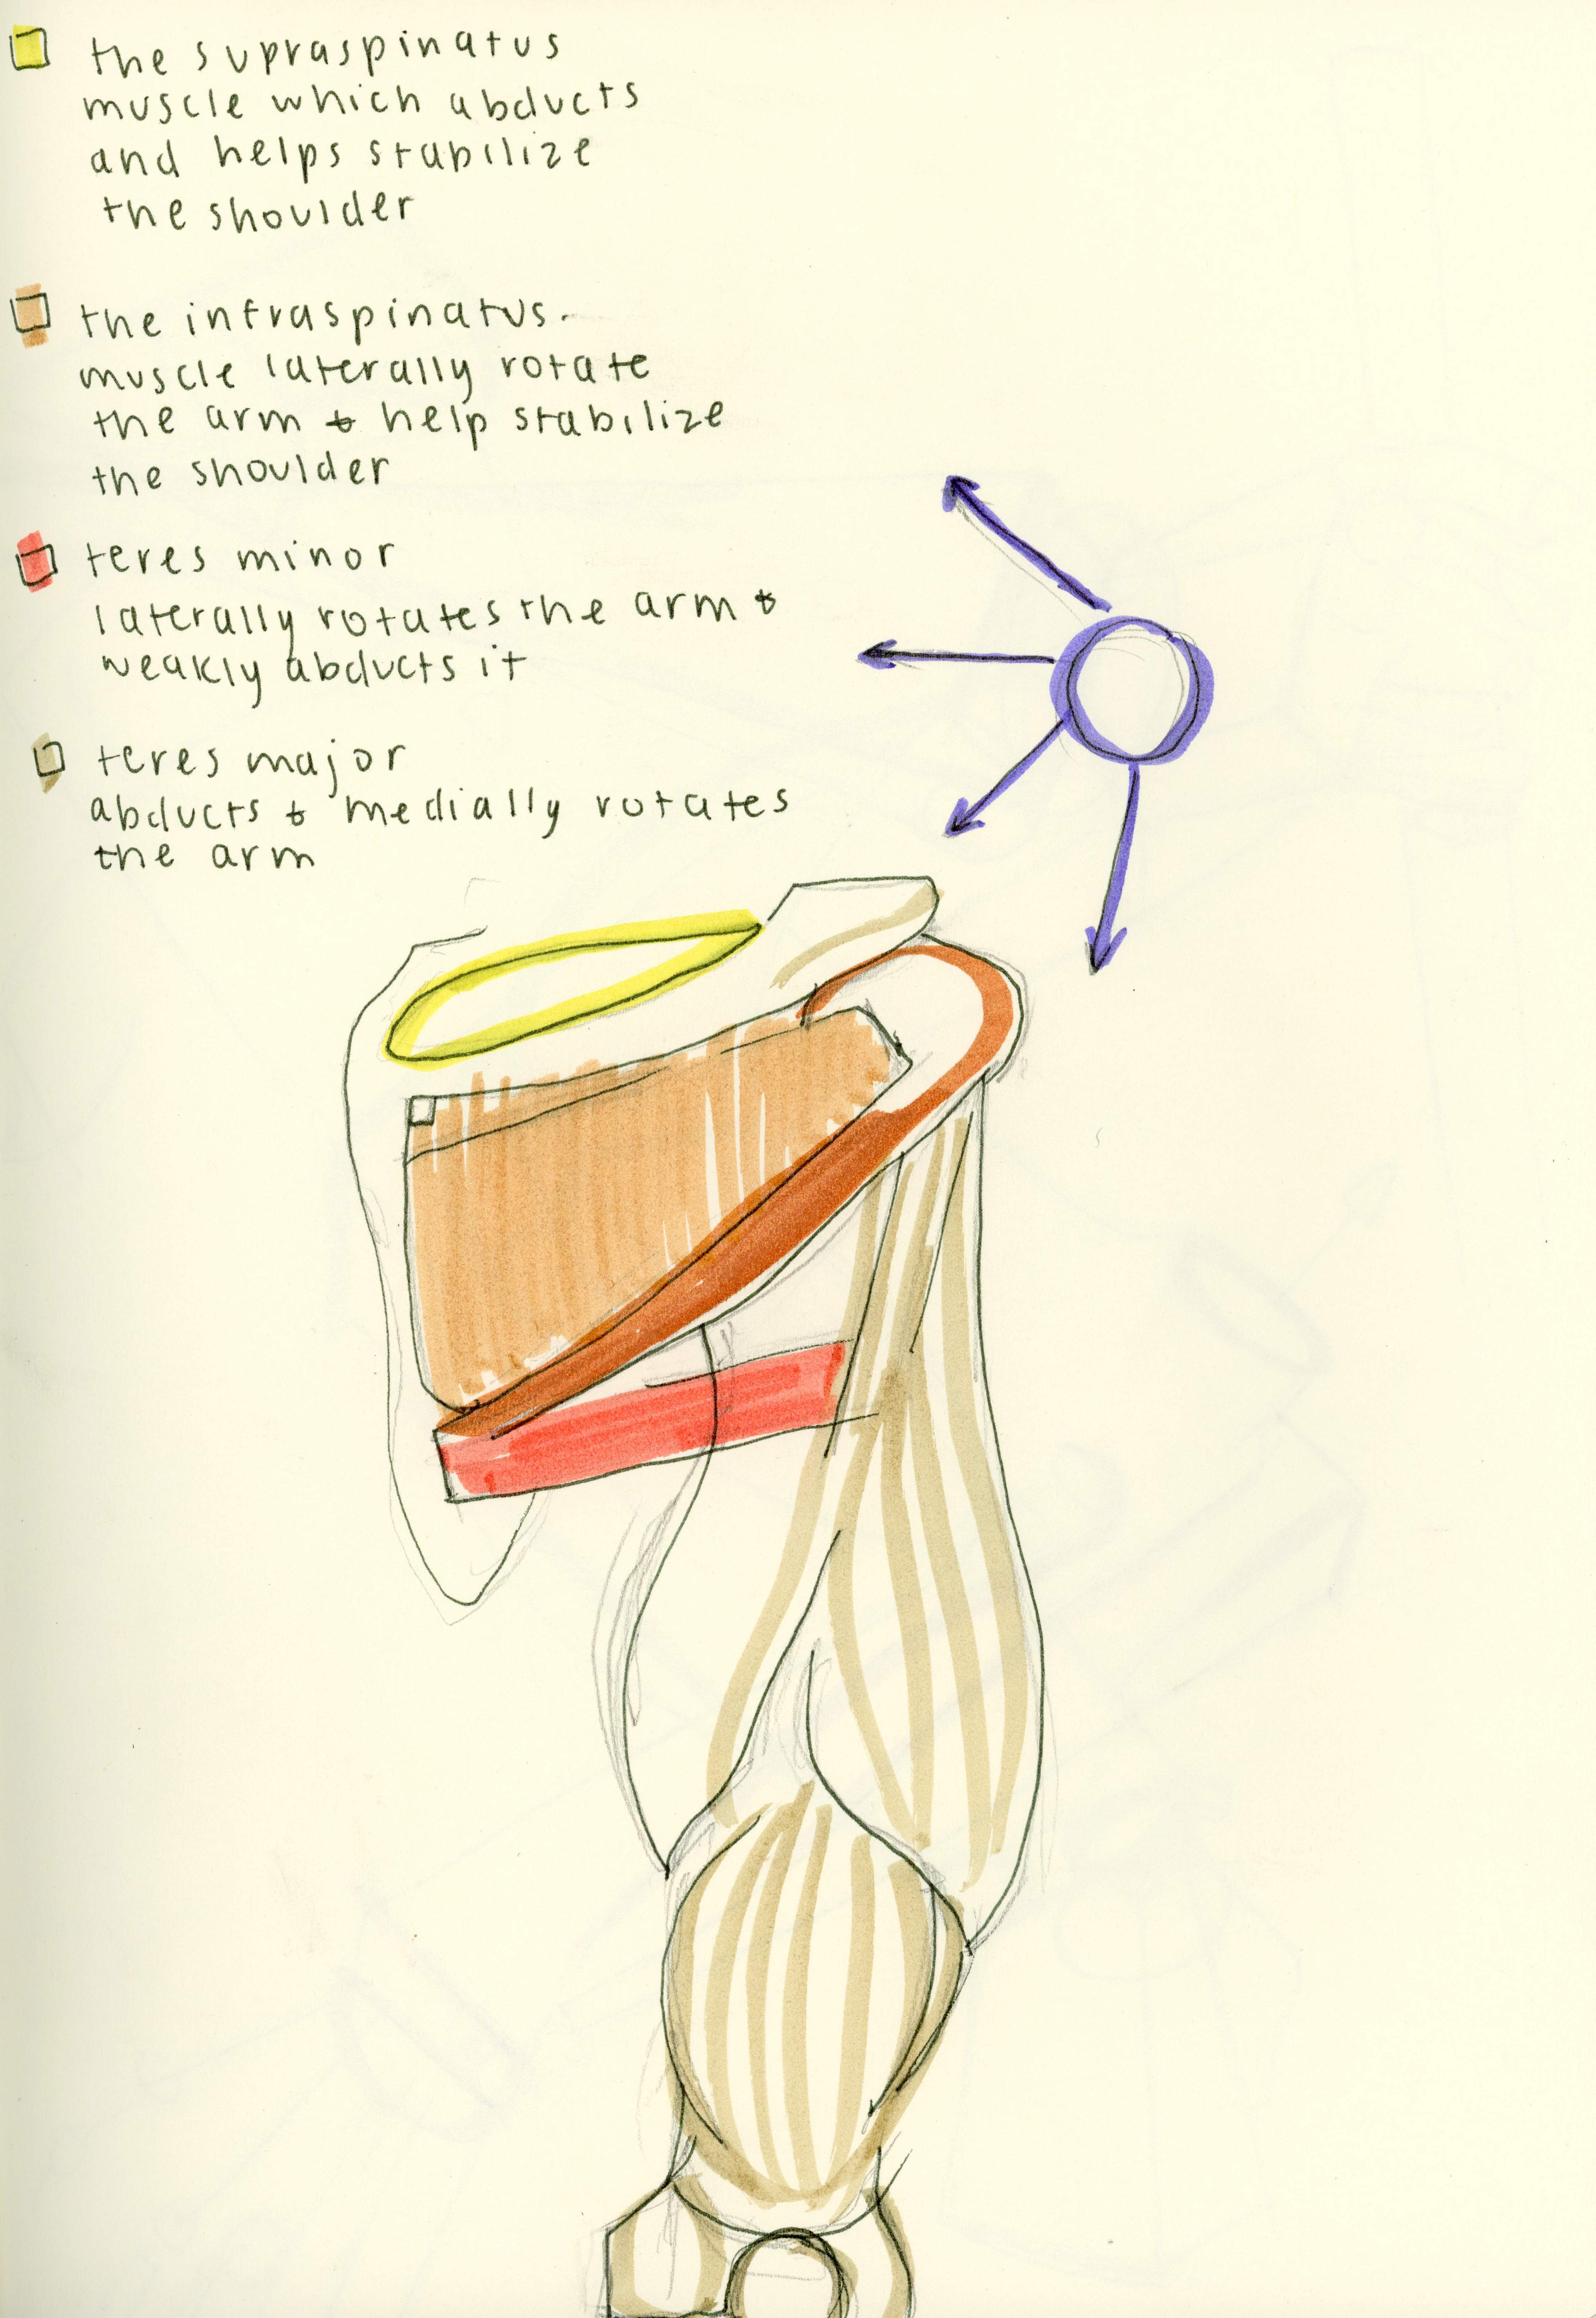 the supraspinatus
muscle which abducts
and helps stabilize
the shoulder
the infraspinatus.
muscle laterally rotate
the arm & help stabilize
the shoulder
teres minor
laterally rotates the arm &
weakly abducts it
teres major
abducts & medially rotates
the arm